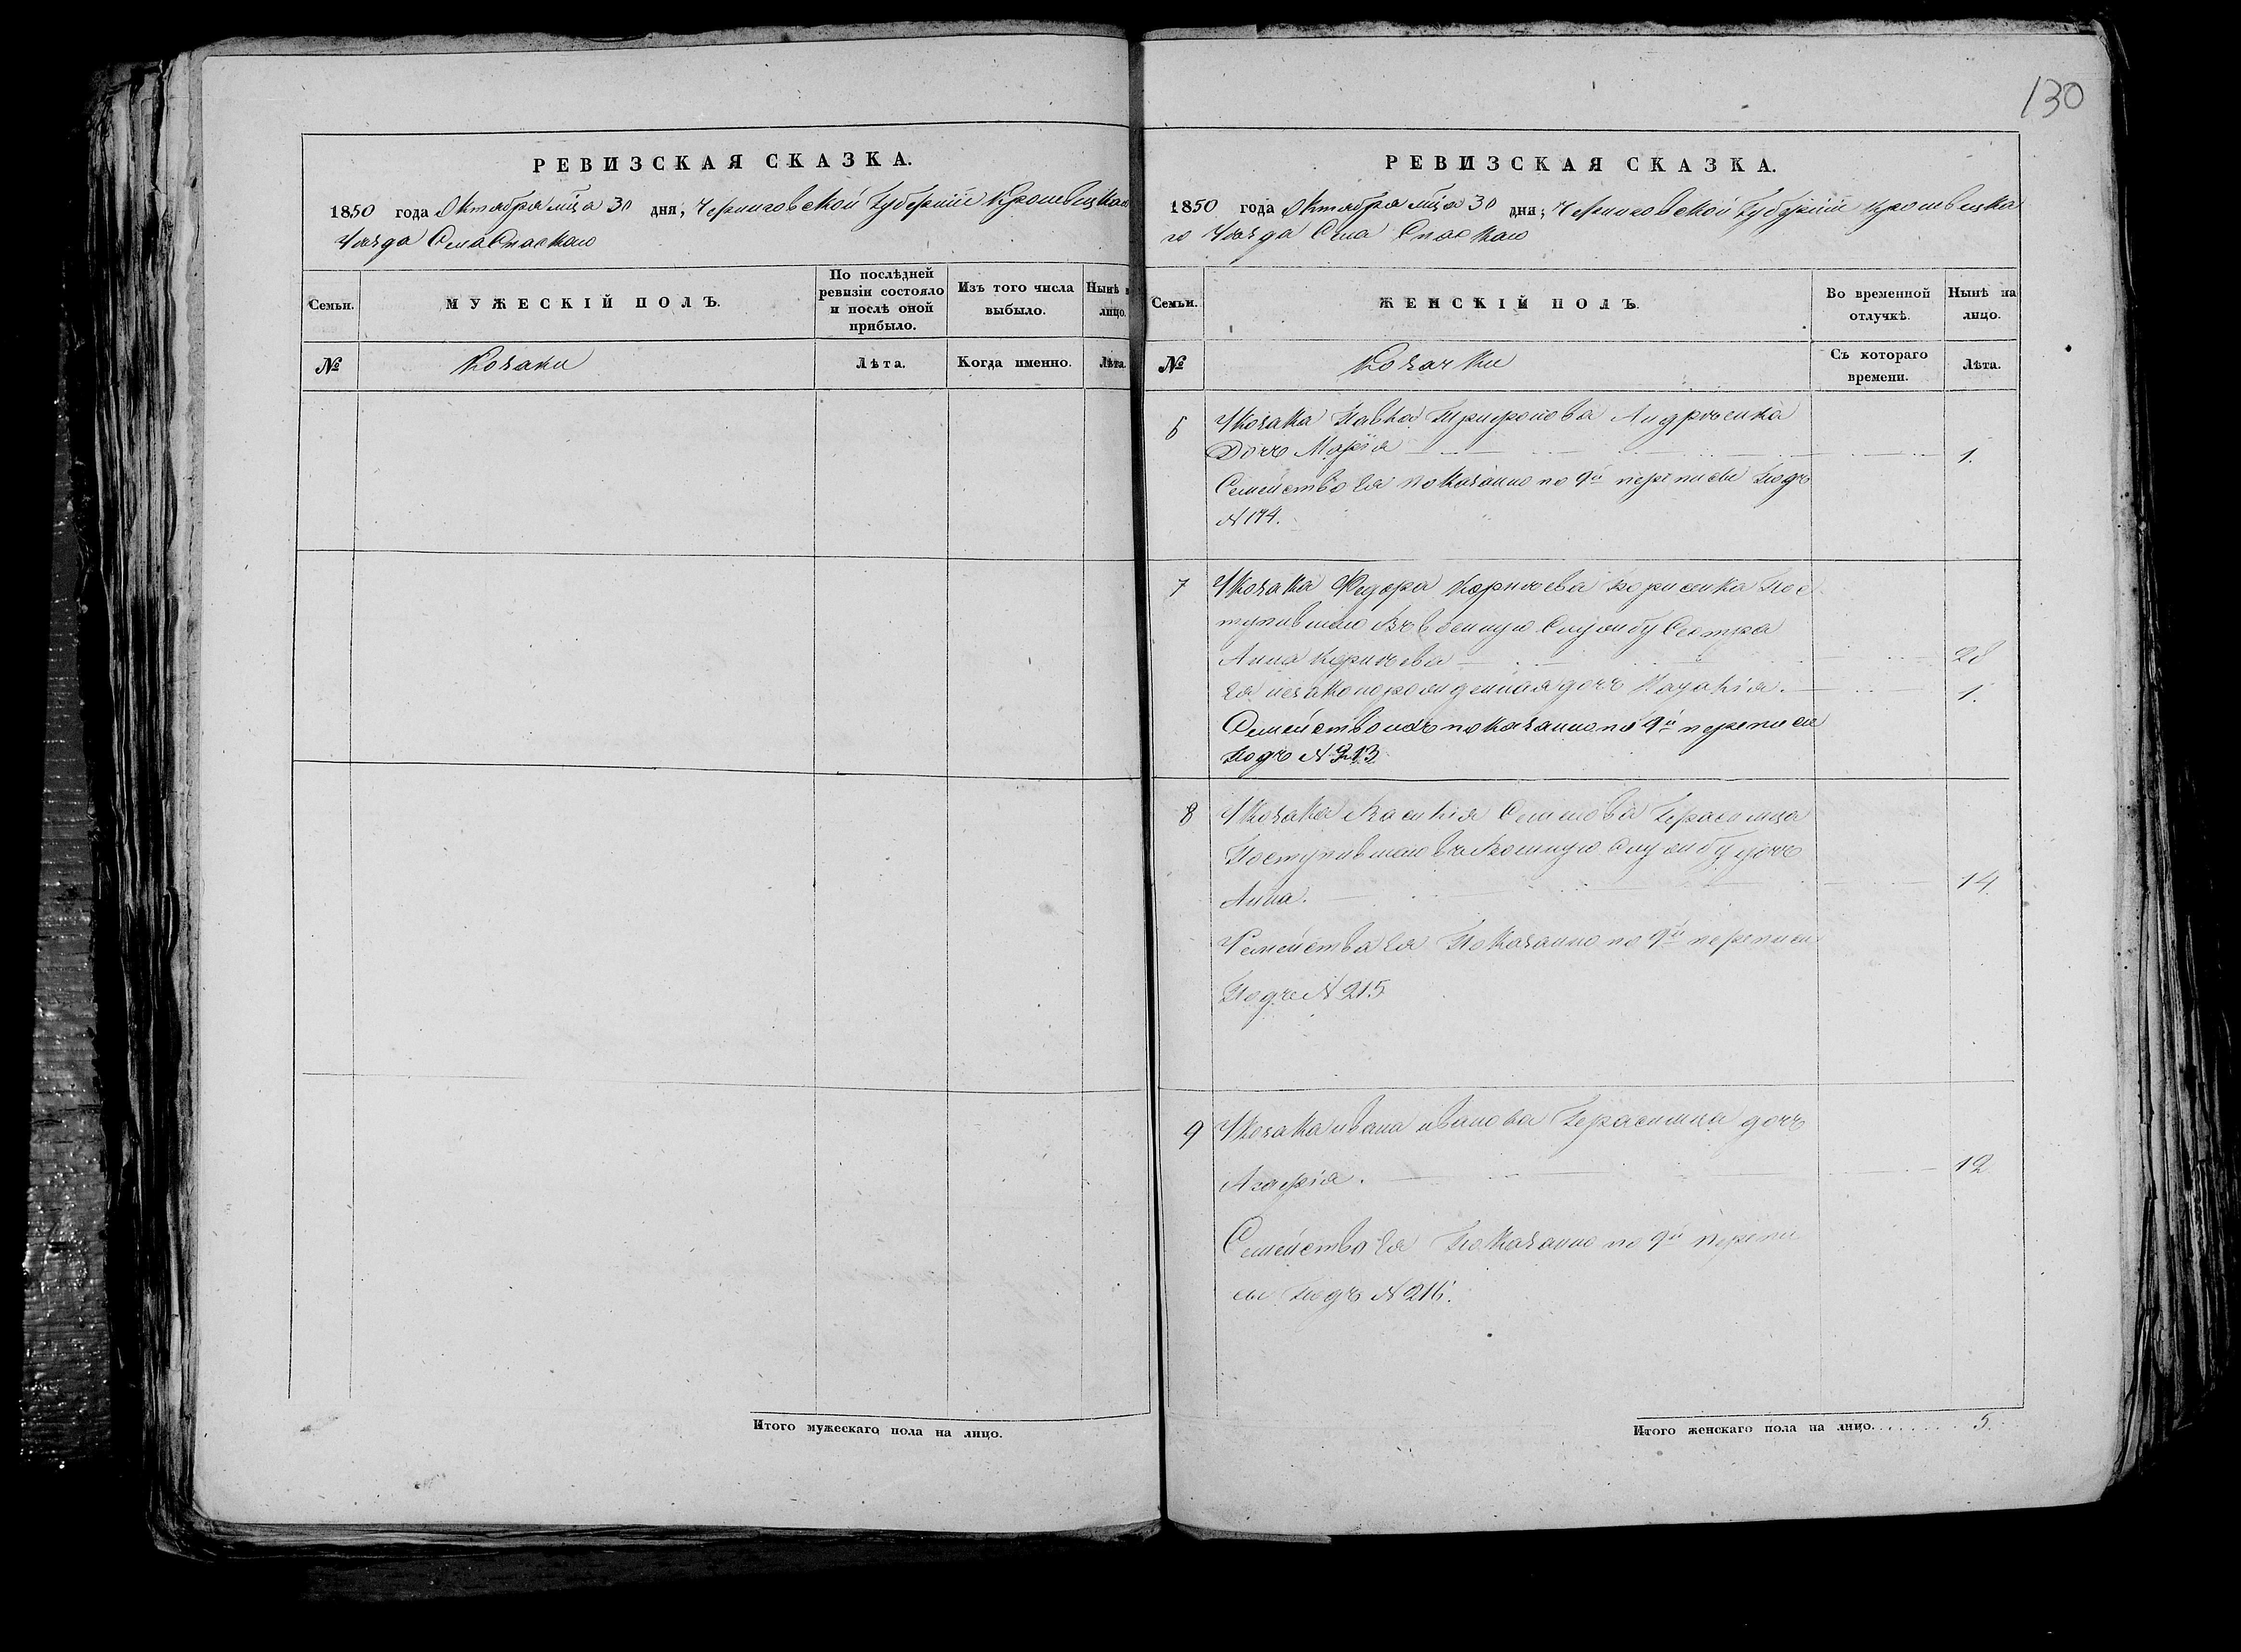 130
РЕВИЗСКАЯ СКАЗКА.
1850 года Октября мца 30 дня, Черниговской Губернiи Кролевецкаго
Уѣзда Села Спаскаго
Семьи.
МУЖЕСКІЙ ПОЛЪ.
По послѣдней ревизіи состояло и послѣ оной прибыло.
Изъ того числа выбыло.
Нынѣ
лицо.
№
Козаки
Лѣта.
Когда именно.
Лѣта.
Итого мужескаго пола на лицо.
РЕВИЗСКАЯ СКАЗКА.
1850 года Октября мца 30 дня, Черниговской Губернiи Кролевецка
го Уѣзда Села Спаскаго
Семьи.
ЖЕНСКІЙ ПОЛЪ.
Во временной отлучкѣ.
Нынѣ на лицо.
№
Козачки
Съ котораго времени.
Лѣта.
6 У козака Павла Трифонова
Дочь Марiя 1.
Семейство Ея показанно по 9й переписи Подъ
N 174.
7 У козака Федора Корнѣева Борисенка Пос
тупившаго въ военную Службу Сестра
Анна Корнѣева 28
Ея незаконорожденная дочь Наталiя. 1.
Семейство ихъ показанно по 9й переписи
Подъ N 213
8 У козака Василiя Семенова Герасимца
Поступившаго въ Военную Службу дочь
Анна. 14
Семейства Ея Показанно по 9й переписи
Подъ N 215
9 У козака ивана иванова Герасимца дочь
Агафiя. 12
Семейство Ея Показанно по 9й перепи
си Подъ N 216.
Итого женскаго пола на лицо........ 5.